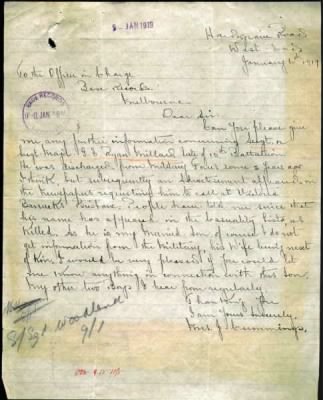 9 JAN 1919
Hardgrave Road
West End
January 6th 1919
To the Officer in Charge
Base Records
Melbourne
BASE RECORDS
Dear Sir
Can you please give
me any further information concerning Sergt. or
Sergt. Major Ryan Millard late of 10th Battalion
He was discharged from Military Duty some 2 years ago
I think but subsequently an advertisement appeared in
the Newspaper requesting him to call at Victoria
Barracks Brisbane. People have told me since that
his name has appeared in the Casualty Lists as
Killed. As he is my Married Son of course I do not
get information from the Military, his Wife being next
of Kin. I would be very pleased if you could let
me know anything in connection with this Son.
My other two Boys I hear from regularly.
Thanking You
I am Yours Sincerely.
Mrs J. Cummings.
S/Sgt Woodland
9/1